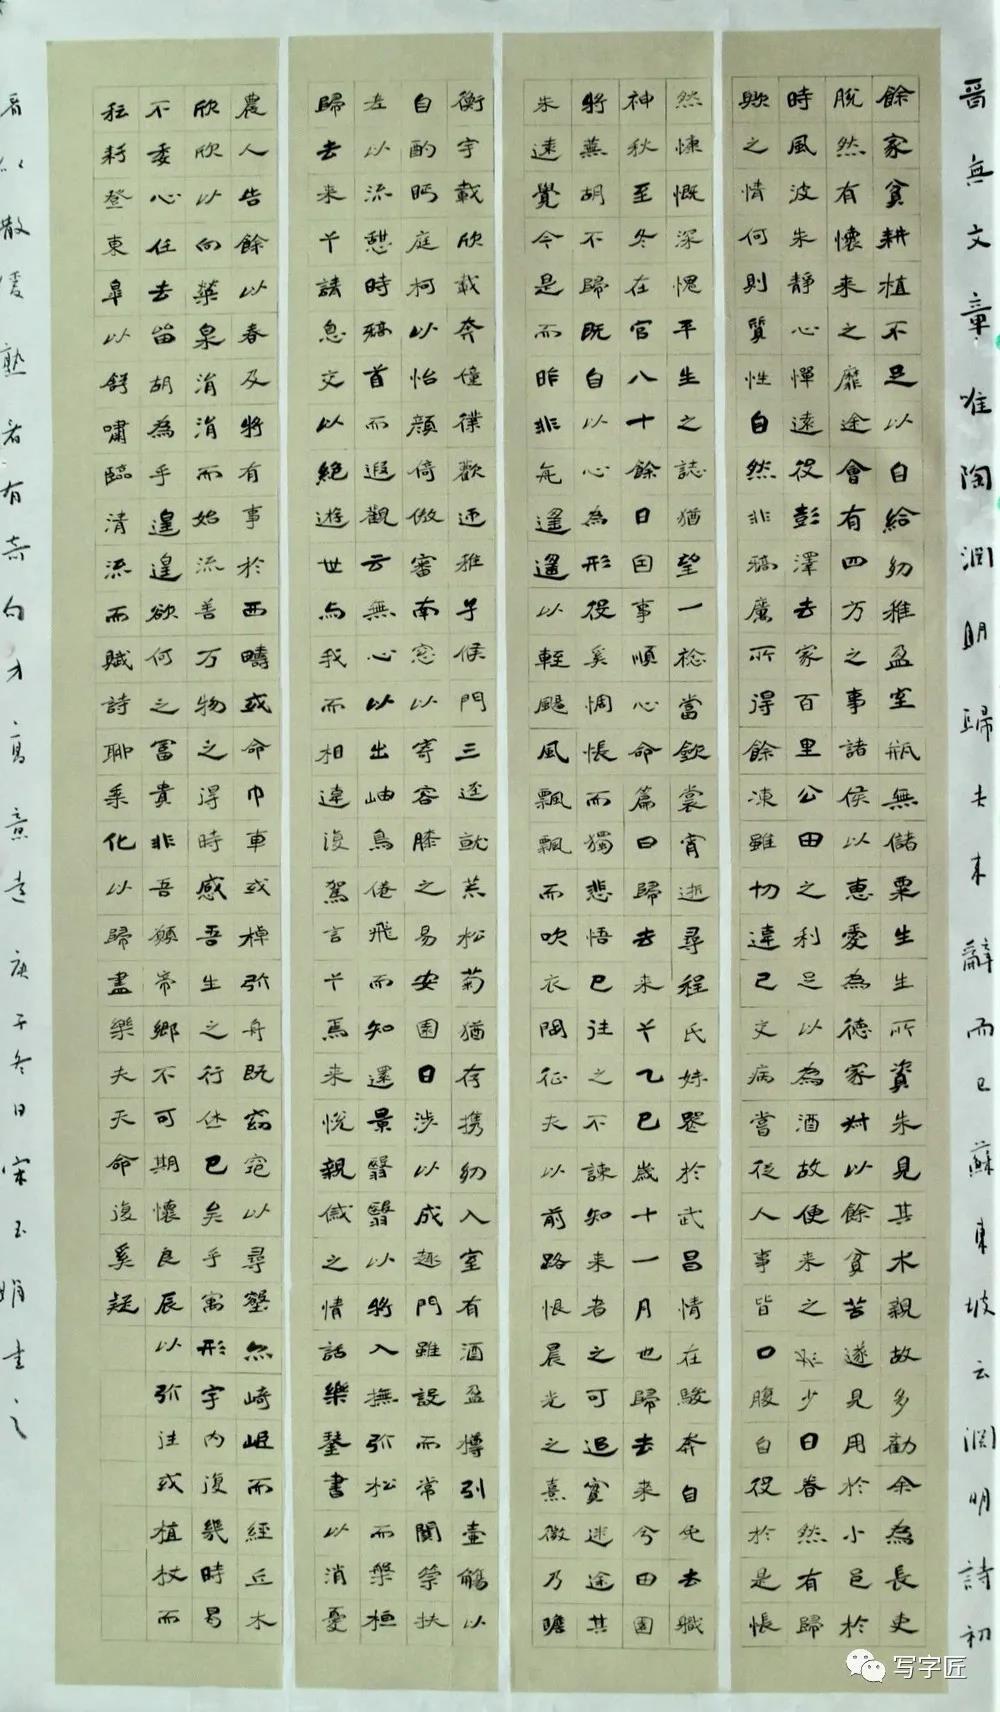 晉無文章唯陶淵明歸去來辭而已蘇東坡云淵明詩初
餘家貧耕植不足以自給幼稚盈室瓶無儲粟生生所資未見其术親故多勸余為長吏
脫然有懷求之靡途會有四方之事諸侯以惠愛為德家叔以餘貧苦遂見用於小邑於
時風波未靜心憚遠役彭澤去家百里公田之利足以為酒故便求之及少日眷然有歸
歟之情何則質性自然非矯厲所得餘凍雖切違己交病嘗從人事皆口腹自役於是悵
然慷慨深愧平生之誌猶望一稔當斂裳宵逝尋程氏妹喪於武昌情在駿奔自免去職
神秋至冬在官八十餘日因事順心命篇曰歸去來兮乙巳歲十一月也歸去來兮田園
將蕪胡不歸既自以心為形役奚惆悵而獨悲悟已往之不諫知來者之可追實迷途其
未遠覺今是而昨非舟遙遙以輕颺風飄飄而吹衣問征夫以前路恨晨光之熹微乃瞻
衡宇載欣載奔僮僕歡迎稚子候門三逕就荒松菊猶存攜幼入室有酒盈樽引壺觴以
自酌眄庭柯以怡顏倚傲審南窓以寄容膝之易安園日涉以成趣門雖設而常關策扶
老以流憩時矯首而遐觀云無心以出岫鳥倦飛而知還景翳翳以將入撫孤松而盤桓
歸去來兮請息交以絕遊世與我而相違復駕言兮焉求悅親戚之情話樂琴書以消憂
農人告餘以春及將有事於西疇或命巾車或棹孤舟既窈窕以尋壑亦崎嶇而經丘木
欣欣以向榮泉涓涓而始流善万物之得時感吾生之行休已矣乎寓形宇內復幾時曷
不委心任去留胡為乎遑遑欲何之富貴非吾願帝鄉不可期懷良辰以孤往或植杖而
耘耔登東皋以舒嘯臨清流而賦詩聊乘化以歸盡樂夫天命復奚疑
看似散緩熟看有奇句才高意遠庚子冬日宋玉娟書之
写字匠